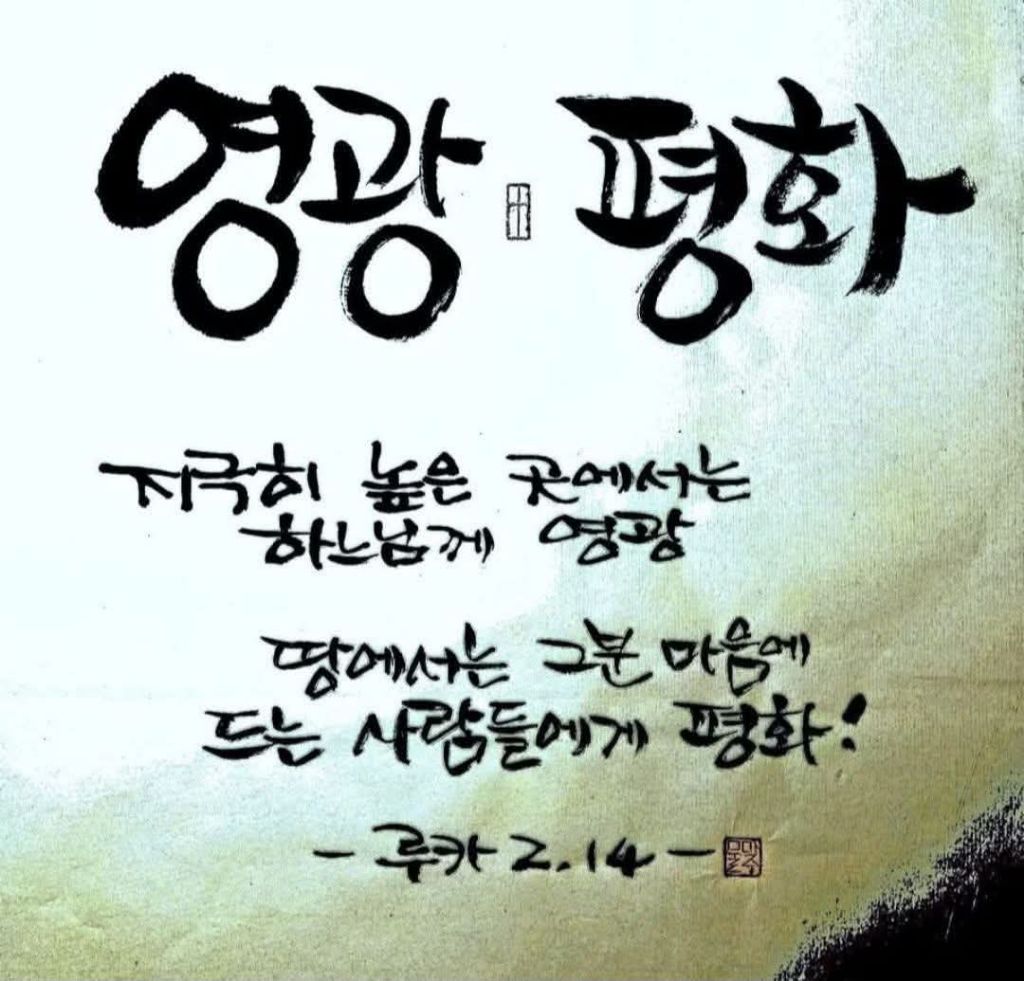 영광 평화
지극히 높은 곳에서는
하느님께 영광
땅에서는 그분 마음에
드는 사람들에게 평화!
- 루카 2.14 -